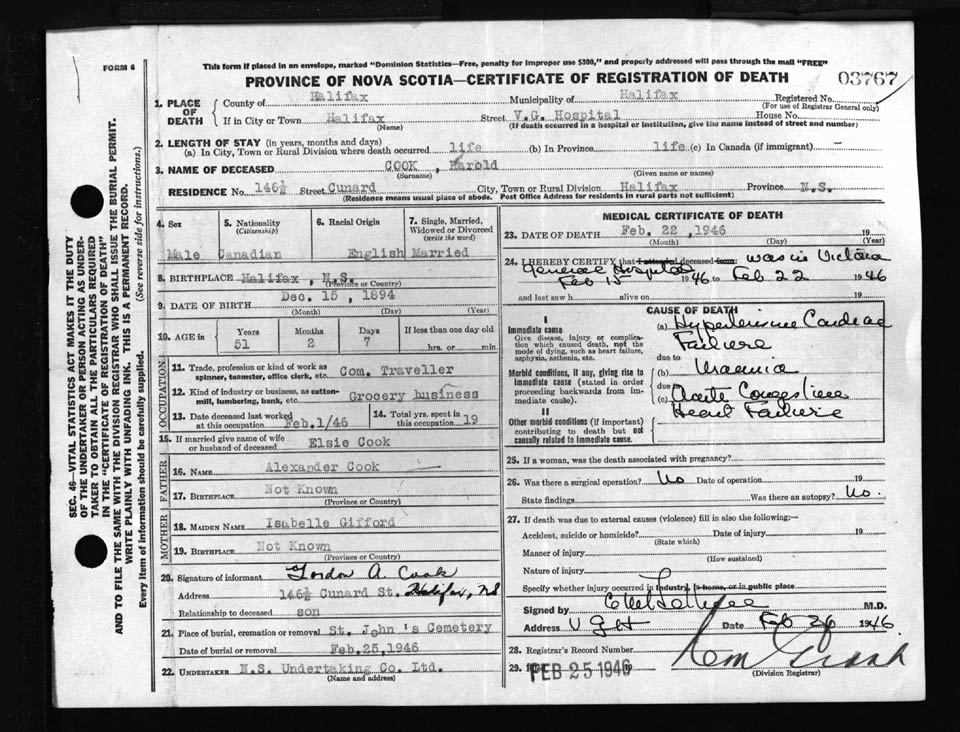 FORM 6
This form if placed in an envelope, marked "Dominion Statistics—Free, penalty for improper use $300," and properly addressed will pass through the mail "FREE"
PROVINCE OF NOVA SCOTIA—CERTIFICATE OF REGISTRATION OF DEATH
03767
1. PLACE OF DEATH
County of Halifax Municipality of Halifax Registered No.
(For use of Registrar General only)
If in City or Town Halifax Street V.G. Hospital House No.
(Name) (If death occurred in a hospital or institution, give the name instead of street and number)
2. LENGTH OF STAY (in years, months and days)
(a) In City, Town or Rural Division where death occurred life (b) In Province life (c) In Canada (if immigrant) -
3. NAME OF DECEASED COOK , Harold
(Surname) (Given name or names)
RESIDENCE No. 146½ Street Cunard City, Town or Rural Division Halifax Province N.S.
(Residence means usual place of abode. Post Office Address for residents in rural parts not sufficient)
4. Sex 5. Nationality 6. Racial Origin 7. Single, Married,
(Citizenship) Widowed or Divorced
(write the word)
Male Canadian English Married
8. BIRTHPLACE Halifax, N.S.
(Province or Country)
9. DATE OF BIRTH Dec. 15, 1894
(Month) (Day) (Year)
10. AGE in Years Months Days If less than one day old
51 2 7 hrs. or min.
OCCUPATION
11. Trade, profession or kind of work as Com. Traveller
spinner, teamster, office clerk, etc.
12. Kind of industry or business, as cotton- Grocery business
mill, lumbering, bank, etc.
13. Date deceased last worked at this occupation Feb.1/46
14. Total yrs. spent in this occupation 19
15. If married give name of wife or husband of deceased Elsie Cook
FATHER
16. NAME Alexander Cook
17. BIRTHPLACE Not Known
(Province or Country)
MOTHER
18. MAIDEN NAME Isabelle Gifford
19. BIRTHPLACE Not Known
(Province or Country)
20. Signature of informant Gordon A. Cook
Address 146½ Cunard St. Halifax, NS
Relationship to deceased son
21. Place of burial, cremation or removal St. John 's Cemetery
Date of burial or removal Feb.25,1946
22. UNDERTAKER N.S. Undertaking Co. Ltd.
(Name and address)
MEDICAL CERTIFICATE OF DEATH
23. DATE OF DEATH Feb. 22 ,1946 19
(Month) (Day) (Year)
24. I HEREBY CERTIFY that I attended deceased from: was in Victoria
General Hospital
Feb 15 1946 to Feb 22 1946
and last saw h alive on 19
CAUSE OF DEATH
I
Immediate cause
Give disease, injury or complication which caused death, not the mode of dying, such as heart failure, asphyxia, asthenia, etc.
(a) Hypertensive Cardiac
Failure
due to
Morbid conditions, if any, giving rise to immediate cause (stated in order proceeding backwards from immediate cause).
(b) Uraemia
due
(c) Acute Congestive
Heart Failure
II
Other morbid conditions (if important) contributing to death but not causally related to immediate cause.
25. If a woman, was the death associated with pregnancy?
26. Was there a surgical operation? No Date of operation 19
State findings Was there an autopsy? No.
27. If death was due to external causes (violence) fill in also the following:—
Accident, suicide or homicide? Date of injury 19
(State which)
Manner of injury
(How sustained)
Nature of injury
Specify whether injury occurred in industry, in home, or in public place
Signed by M.D.
Address VGH Date Feb 1946
28. Registrar's Record Number
29. FEB 25 1946
(Division Registrar)
SEC. 46—VITAL STATISTICS ACT MAKES IT THE DUTY
OF THE UNDERTAKER OR PERSON ACTING AS UNDERTAKER TO OBTAIN ALL THE PARTICULARS REQUIRED
IN THE "CERTIFICATE OF REGISTRATION OF DEATH"
AND TO FILE THE SAME WITH THE DIVISION REGISTRAR WHO SHALL ISSUE THE BURIAL PERMIT.
WRITE PLAINLY WITH UNFADING INK. THIS IS A PERMANENT RECORD.
Every item of information should be carefully supplied. (See reverse side for instructions.)